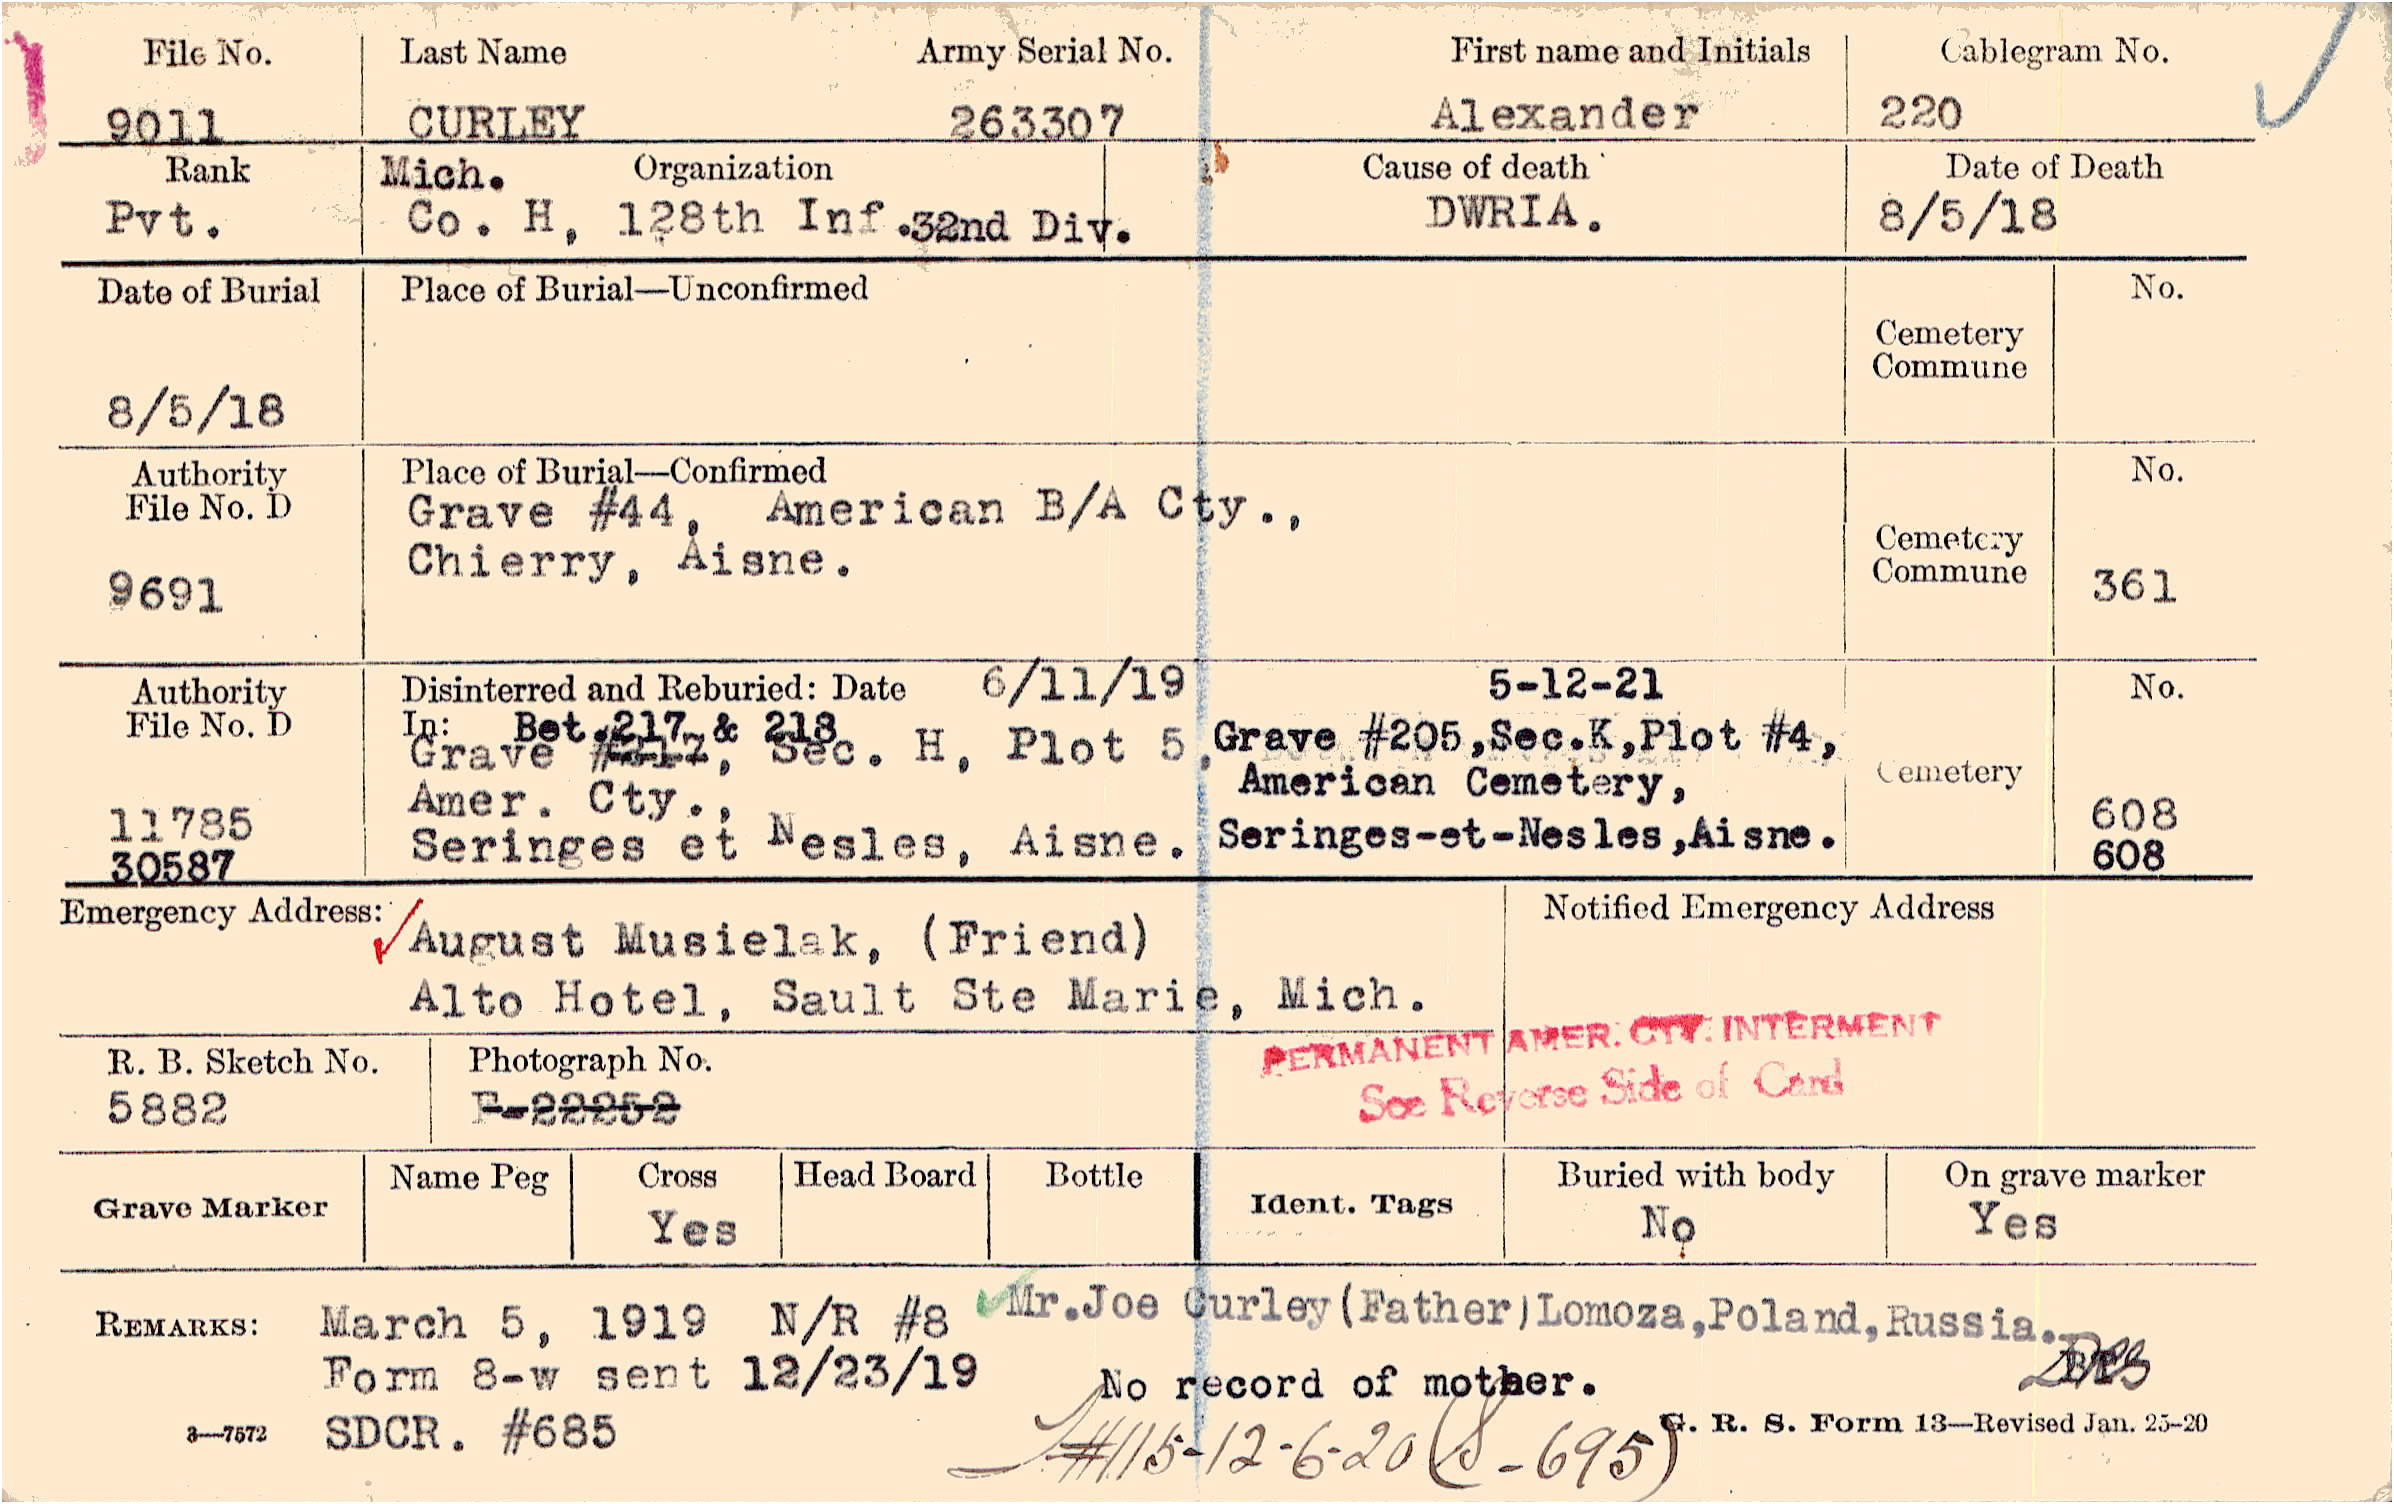 File No. Last Name Army Serial No. First name and Initials Cablegram No.
9011 CURLEY 263307 Alexander 220
Rank Mich. Organization Cause of death Date of Death
Pvt. Co. H, 128th Inf. 32nd Div. DWRIA. 8/5/18
Date of Burial Place of Burial—Unconfirmed No.
Cemetery
Commune
8/5/18
Authority Place of Burial—Confirmed No.
File No. D Grave #44, American B/A Cty.,
Chierry, Aisne. Cemetery
Commune
9691 361
Authority Disinterred and Reburied: Date 6/11/19 5-12-21 No.
File No. D In: Bet. 217 & 218
Grave #217, Sec. H, Plot 5, Grave #205,Sec.K,Plot #4,
Amer. Cty., American Cemetery, Cemetery
11785 Seringes et Nesles, Aisne. Seringes-et-Nesles,Aisne. 608
30587 608
Emergency Address: August Musielak, (Friend) Notified Emergency Address
Alto Hotel, Sault Ste Marie, Mich.
PERMANENT AMER. CTY. INTERMENT
See Reverse Side of Card
R. B. Sketch No. Photograph No.
5882 F-22252
Grave Marker Name Peg Cross Head Board Bottle Ident. Tags Buried with body On grave marker
Yes No Yes
REMARKS: March 5, 1919 N/R #8 Mr.Joe Curley(Father)Lomoza,Poland,Russia.
Form 8-w sent 12/23/19 No record of mother.
3—7572 SDCR. #685 G. R. S. Form 13—Revised Jan. 25-20
#115-12-6-20 (S-695)